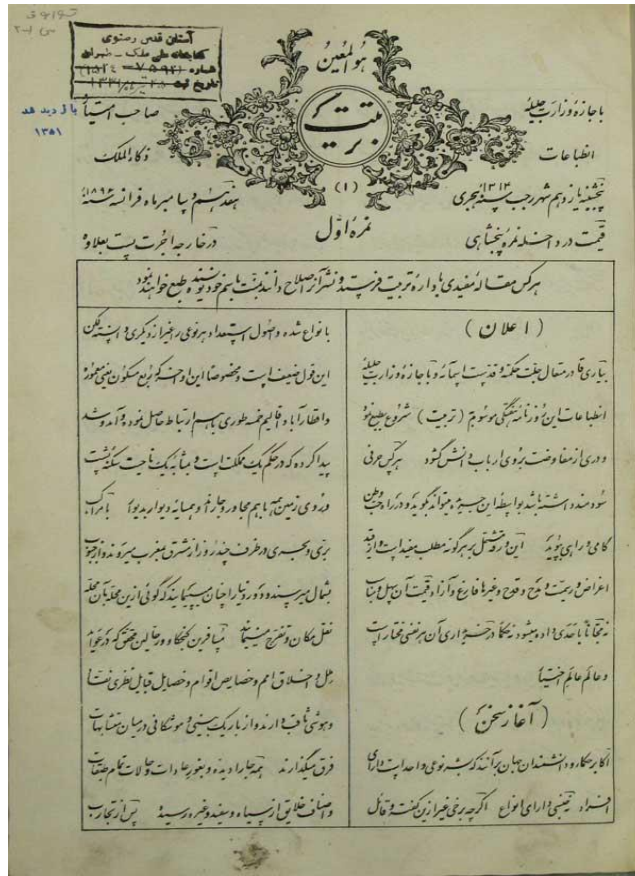 آستان قدس رضوی
کتابخانه ملی ملک - طهران
شماره
تاریخ ثبت
بازدید شد
۱۳۵۱
هوالمعین
تربیت
(۱)
باجازه وزارت جلیله
انطباعات
صاحب امتیاز
ذکاءالملک
پنجشنبه یازدهم شهر رجب سنه ۱۳۱۴ هجری
هفدهم دسامبر ماه فرانسه سنه ۱۸۹۶
نمره اول
قیمت در داخله نمره پنجشاهی
در خارجه اجرت پست بعلاوه
هرکس مقاله مفیدی باداره تربیت فرستد و نشر آنرا صلاح دانند بمنت باسم خود نویسنده طبع خواهد نمود
(اعلان)
بیاری قادر متعال جلت حکمته و قدست اسمائه و باجازه وزارت جلیله
انطباعات این روزنامه هفتگی موسوم به (تربیت) شروع بطبع نمود
و دری از مفاوضت بروی ارباب دانش گشود هرکس حرفی
سودمند داشته باشد بواسطه این جریده میتواند گوید و در راه حب وطن
گامی و راهی پوید این ورقه مشتمل بر هرگونه مطلب مفید است و از قید
اغراض و مدح و قدح و غیرها فارغ و آزاد قیمت آن سهل و
نه مجاناً باحدی داده میشود نه در خریداری آن هر نفسی مختار است
و عالم عالم اختیار
(آغاز سخن)
اکابر حکما و دانشمندان جهان برآنند که بشر نوعی واحد است دارای
افراد نه جنسی دارای انواع اگرچه برخی غیر ازین گفته و قائل
بانواع شده و اصول استعداد هر نوعی را غیر از دیگری دانسته لکن
این قول ضعیف است و مخصوصاً این اواخر که ربع مسکون یعنی معموره
و اقطار آباد اقالیم خمسه طوری باهم ارتباط حاصل نموده و آمد و شد
پیدا کرده که در حکم یک مملکت است و بمثابه یک ناحیت سکنه پشت
و روی زمین همه باهم مجاور و جارند و همسایه دیوار بدیوار بامراکب
بری و بحری در ظرف چند روز از مشرق بمغرب میروند و از جنوب
بشمال میرسند و دور دنیا را چنان میپیمایند که گوئی ازین محله بآن محله
نقل مکان و تفرج مینمایند مسافرین کنجکاو و رجالین محقق که در عوائد
ملل و اخلاق امم و خصایص اقوام و خصایل قبایل نظری نقاد
و هوشی ثاقب دارند و از باریک بینی و موشکافی در میان متشابهات
فرق میگذارند همه جا را دیده و بغور عادات و حالات تمام طبقات
و اصناف خلایق از سیاه و سفید و غیره رسیده پس از تجارب